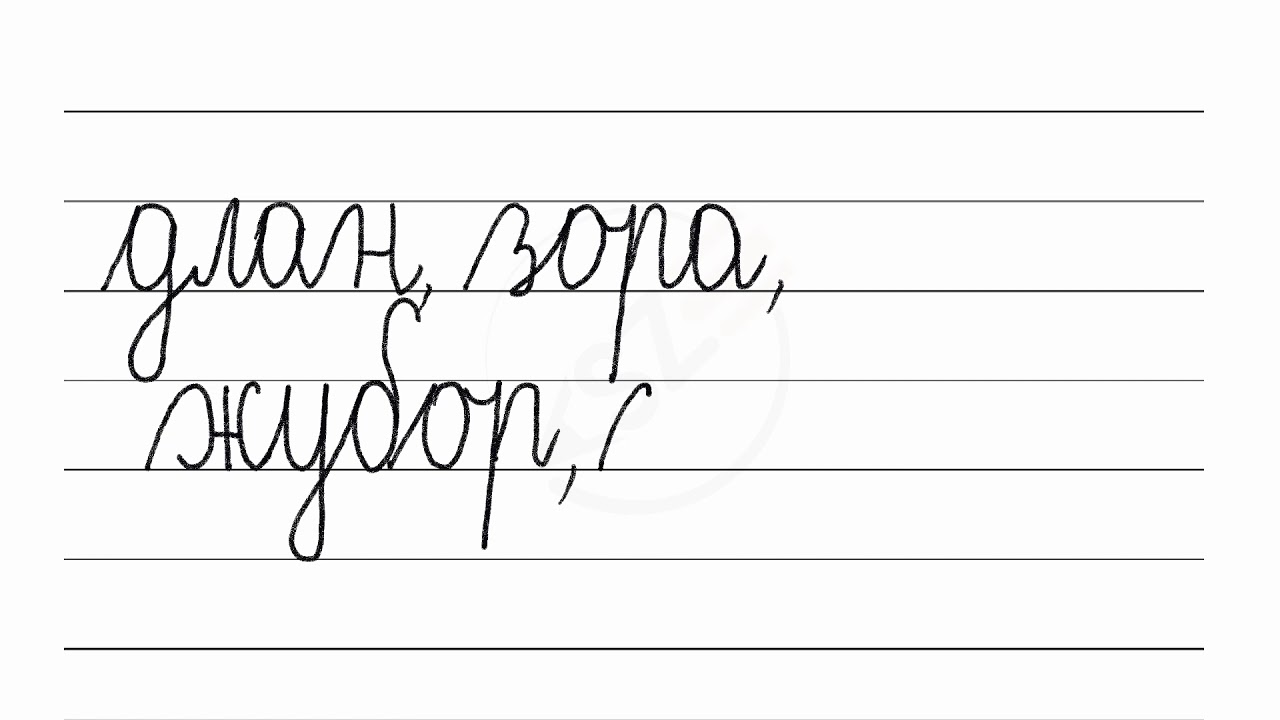 длан, зора,
жубор,